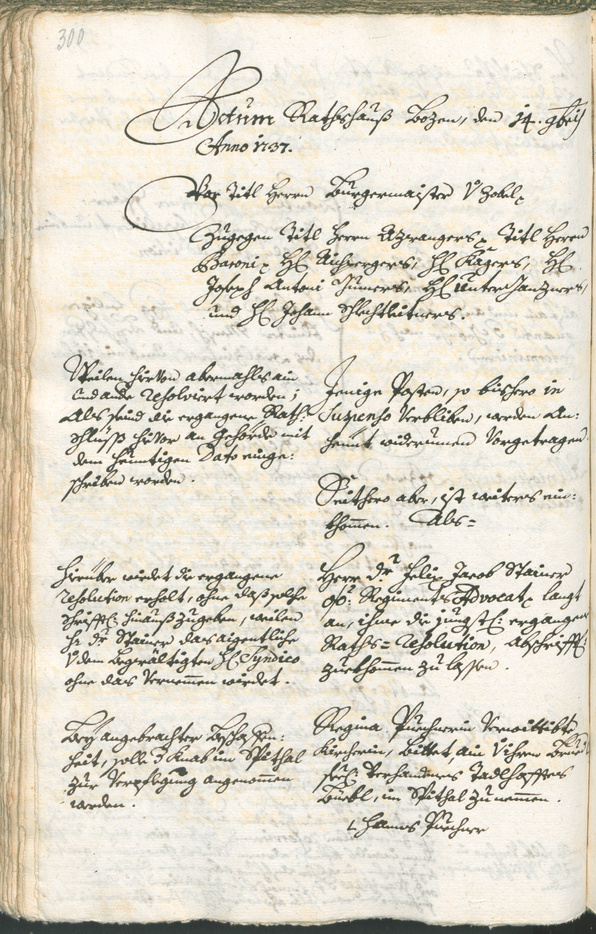 300
Actum Rathshauß Bozen, den 14. 9bris
Anno 1737.
Vor Titl Herrn Burgermaister V. Zobel
Zugegen Titl Herrn Azwangers, Titl Herrn
Baroni, H: Aichpergers, H: Kagers, H:
Joseph Antoni Sumers, H: Unterganzners,
und H: Johann Schlechtleitners.
Weilen hievon abermahls ain
und ande resolviert worden;
Als seind die ergangene Rath-
schluß hievor an gehörde mit
dem heuntigen Dato einge-
schriben worden.
Jenige Posten, so bishero in
Suspenso verbliben, werden an-
heunt widerumen vorgetragen
Seithero aber, ist weiters ein-
khomen. Als=
Hierüber wirdet die ergangene
resolution erholt, ohne daß solche
schrifftl: hinauß zugeben, weilen
H: Dr Stainer das aigentliche
V. dem begwältigten H: Syndico
ohne das vernemmen wirdet.
Herr Dr Felix Jacob Stainer
Oö: Regiments Advocat, langt
an, ihme die jungstl: ergangene
Raths= resolution, abschrifftl:
zuekhomen zu lassen.
Bey angebrachter beschaffen-
heit, solle der Knab im Spithal
zur Verpflegung angenommen
werden.
Regina Puechnerin verwittibte
Kircherin, bittet, ain V. ihrem Brued
seel: verhandnes tadlhafftes
Büebl, im Spithal zu nemmen.
Hannes Puechner